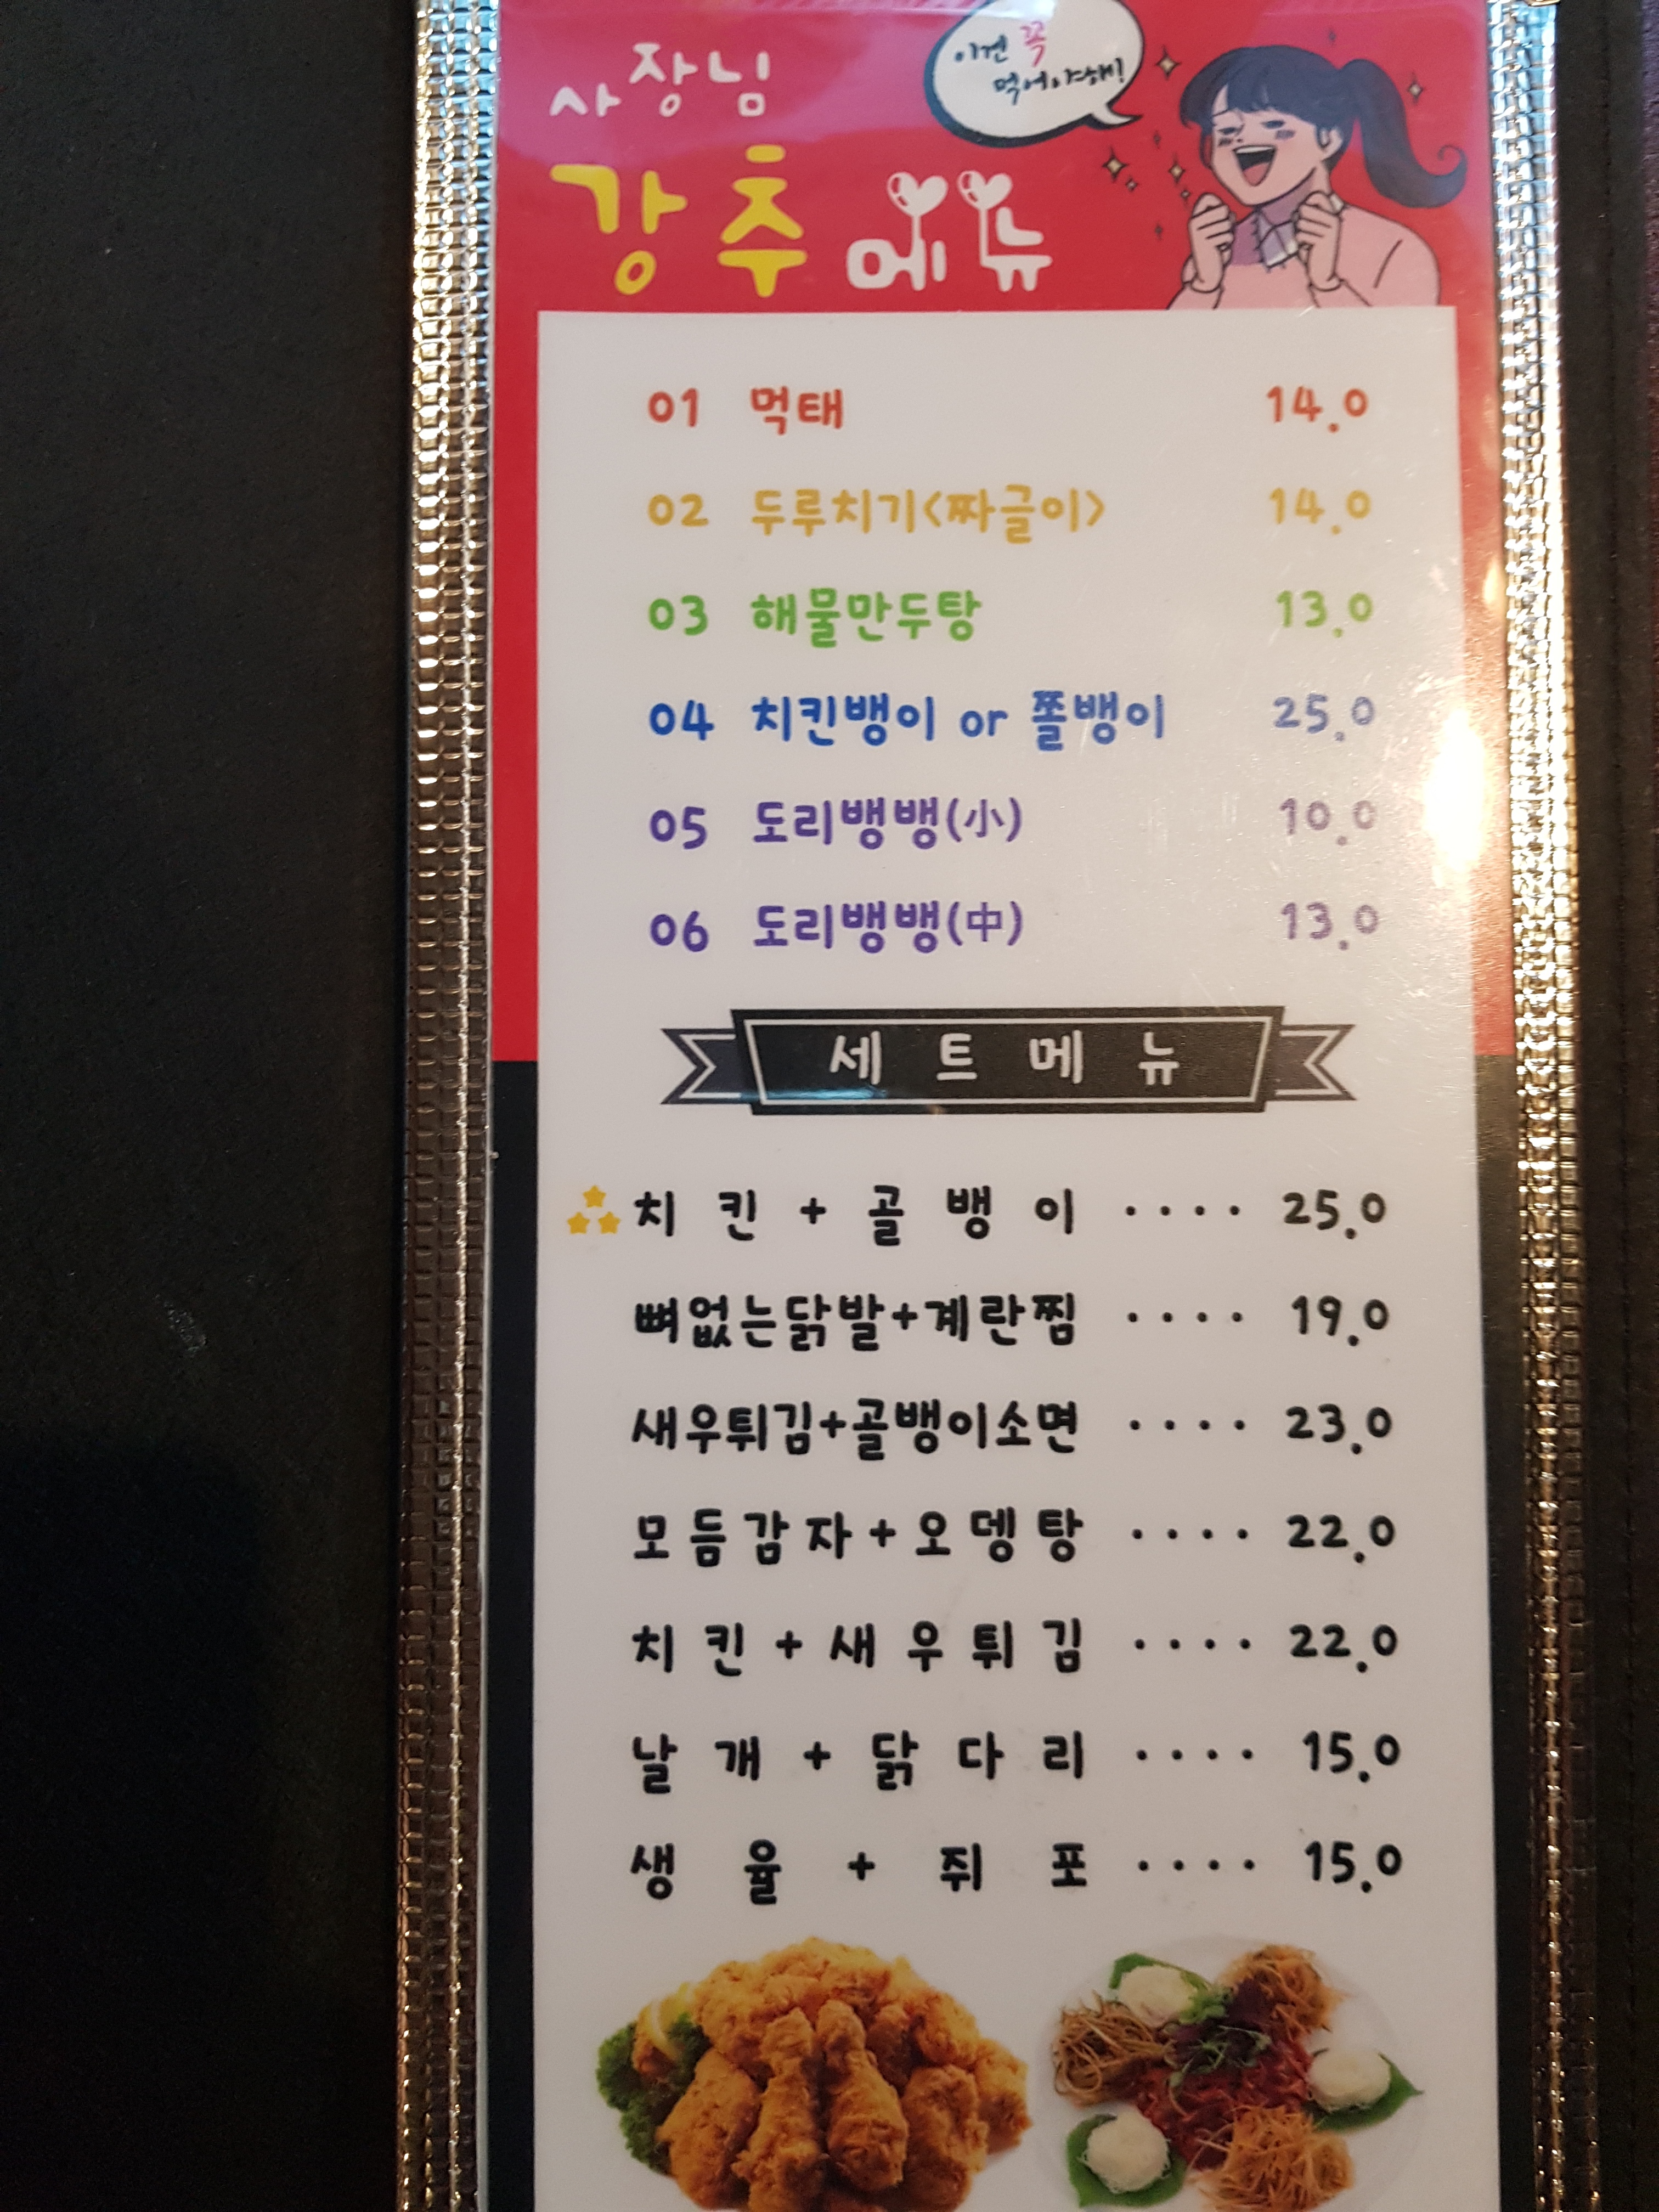 사장님
이건 꼭
먹어야해!
강추 메뉴
01 먹태 14.0
02 두루치기<짜글이> 14.0
03 해물만두탕 13.0
04 치킨뱅이 or 쫄뱅이 25.0
05 도리뱅뱅(小) 10.0
06 도리뱅뱅(中) 13.0
세트메뉴
치킨+골뱅이 ···· 25.0
뼈없는닭발+계란찜 ···· 19.0
새우튀김+골뱅이소면 ···· 23.0
모듬감자+오뎅탕 ···· 22.0
치킨+새우튀김 ···· 22.0
날개+닭다리 ···· 15.0
생율+쥐포 ···· 15.0